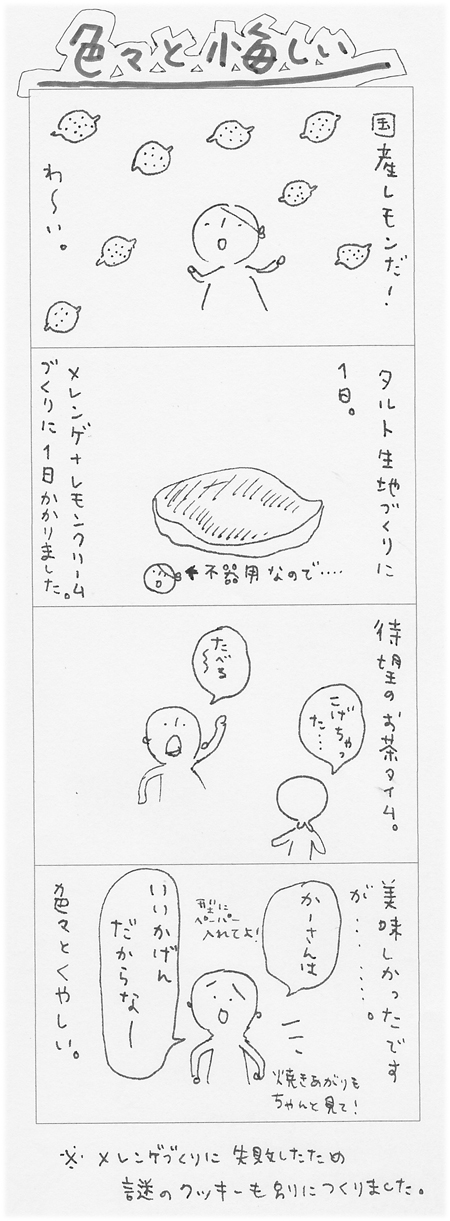 色々と悔しい
国産レモンだ!
わ〜い。
タルト生地づくりに
1日。
メレンゲ+レモンクリーム
づくりに1日かかりました。
←不器用なので‥‥
待望のお茶タイム。
こげちゃっ
た‥‥
たべる
美味しかったです
が‥‥‥‥。
かーさんは
型に
ペーパー
入れてよ!
いいかげん
だからなー
焼きあがりも
ちゃんと見て!
色々とくやしい。
※メレンゲづくりに失敗したため
謎のクッキーも別につくりました。